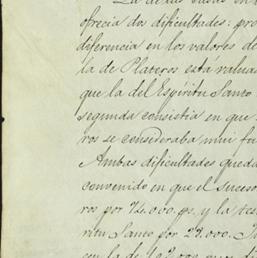 La de las casas en
ofrecia dos dificultades: pro
diferencia en los valores de
la de Plateros está valua
que la del Espíritu Santo
segunda consistia en que
ros se consideraba mui fu
Ambas dificultades queda
convenido en que el Suceso
ros por 74.000 ps, y la res
ritu Santo por 22.000. I
con la de